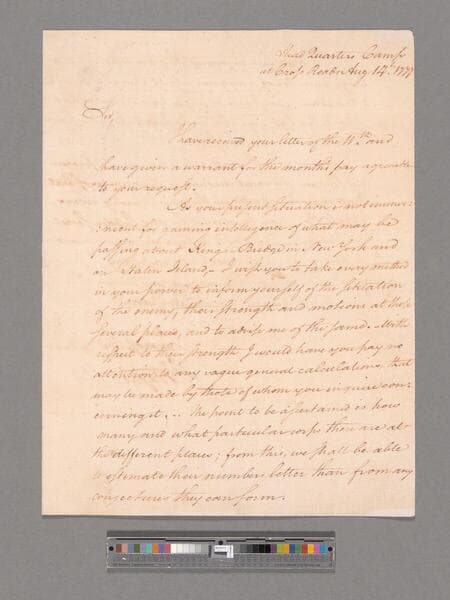 Head Quarters Camp
at Cross Roads Aug. 14th. 1777
Sir,
I have received your letter of the 11th. and
have given a warrant for the months pay agreeable
to your request.
As your present situation is not inconve:
:nient for gaining intelligence of what may be
passing about Kings-Bridge in New York and
on Staten Island,- I wish you to take every method
in your power to inform yourself of the situation
of the enemy, their strength and motions at these
several places, and to advise me of the same. - With
respect to their strength I would have you pay no
attention to any vague general calculations, that
may be made by those of whom you inquire con:
:cerning it; .. The point to be ascertained is how
many and what particular corps there are at
the different places; from this, we shall be able
to estimate their numbers better than from any
conjectures they can form.